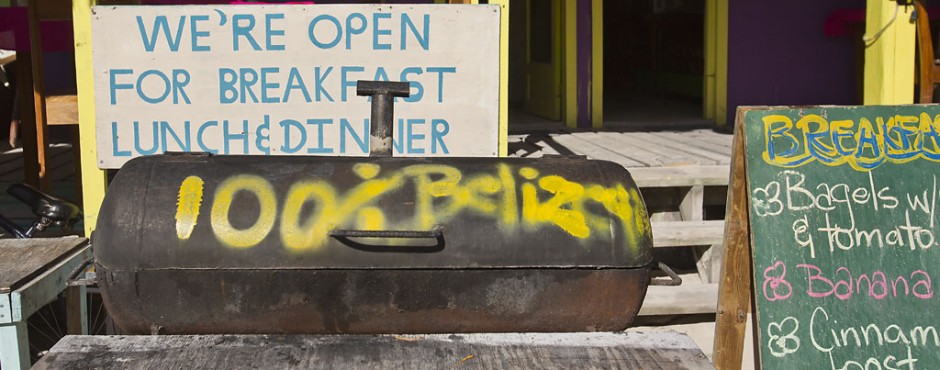 WE'RE OPEN
FOR BREAKFAST
LUNCH & DINNER
100% Belizean
BREAKFA
Bagels w/
& tomato
Banana
Cinnam
Toast